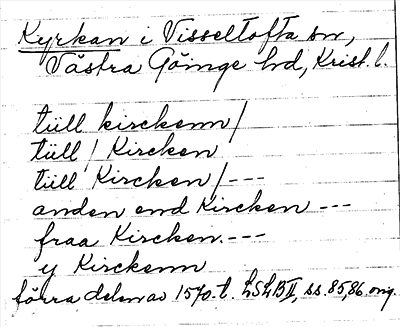 Kyrkan i Visseltofta sn,
Västra Göinge hd, Krist. l.
tüll kirckenn /
tüll / Kircken
tüll Kircken / ---
anden end Kircken ---
fraa Kircken. ---
y Kirckenn
förra delen av 1570-t. LSLB II, ss. 85, 86 orig.